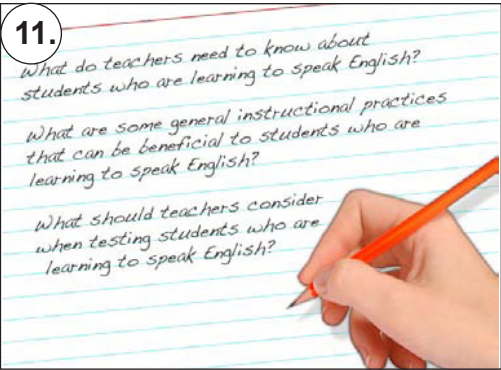 11.
What do teachers need to know about
students who are learning to speak English?
What are some general instructional practices
that can be beneficial to students who are
learning to speak English?
What should teachers consider
when testing students who are
learning to speak English?